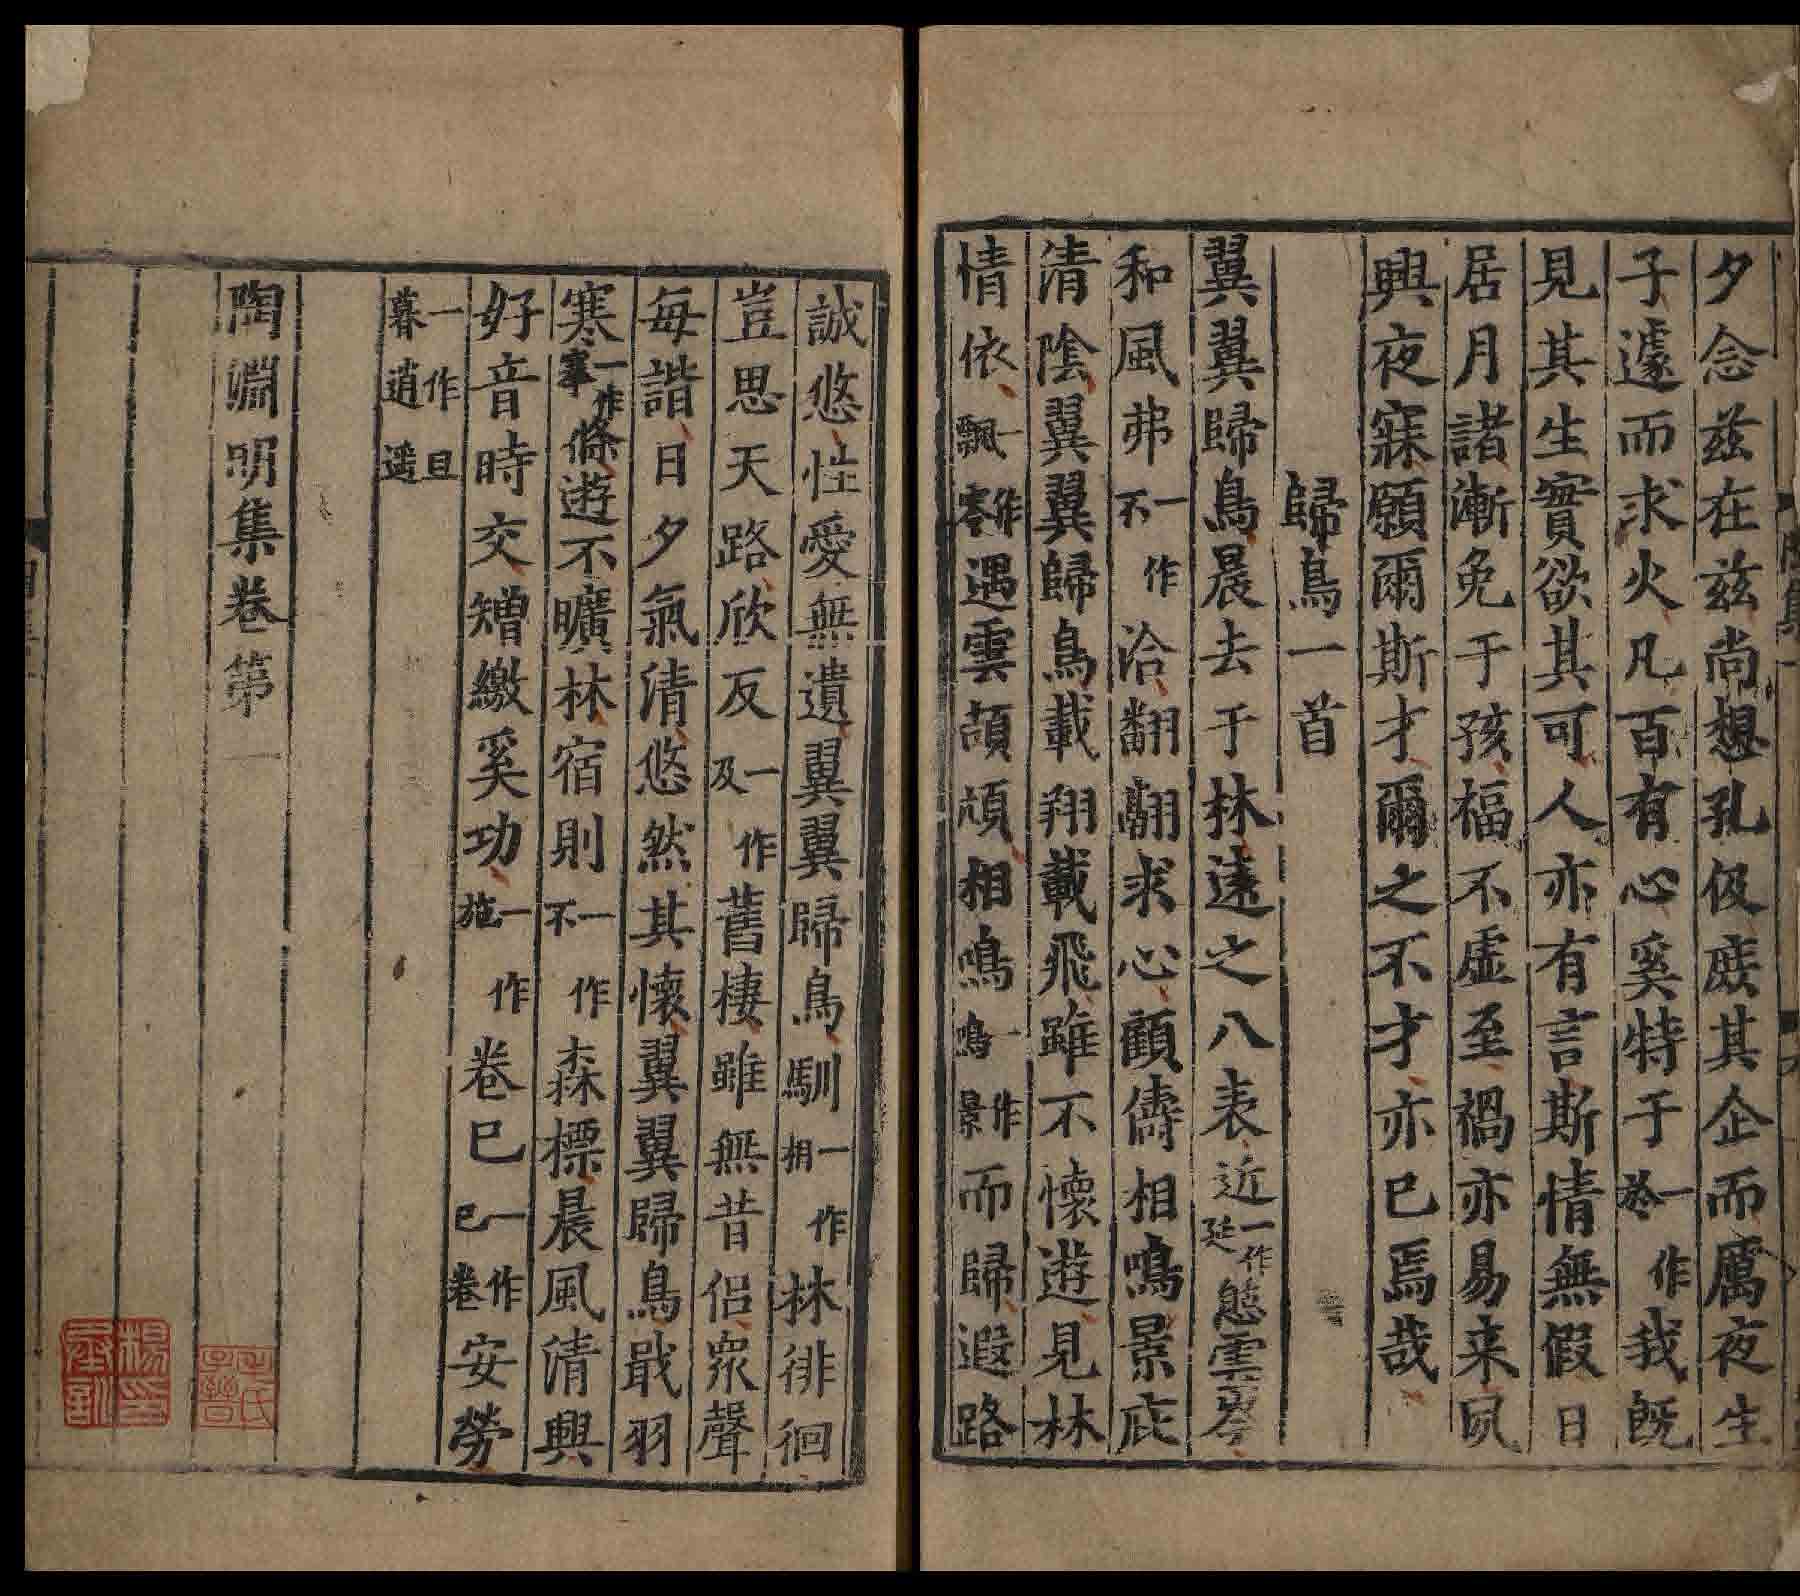 夕念兹在兹尚想孔伋庻其企而厲夜生
子遽而求火凡百有心奚特于一作於我旣
見其生實欲其可人亦有言斯情無假日
居月諸漸免于孩福不虛至禍亦易来夙
興夜寐願爾斯才爾之不才亦已焉哉
歸鳥一首
翼翼歸鳥晨去于林遠之八表近一作延憇雲岑
和風弗一作不洽翻翮求心顧儔相鳴景庇
清陰翼翼歸鳥載翔載飛雖不懷遊見林
情依一作飄零遇雲頡頏相鳴一作鳴景而歸遐路
誠悠性愛無遺翼翼歸鳥馴一作相林徘徊
豈思天路欣反一作及舊棲雖無昔侣衆聲
每諧日夕氣清悠然其懷翼翼歸鳥戢羽
寒一作搴條遊不曠林宿則一作不森標晨風清興
好音時交矰繳奚功一作施卷已一作已卷安勞
一作旦暮逍遥
陶淵明集卷第一